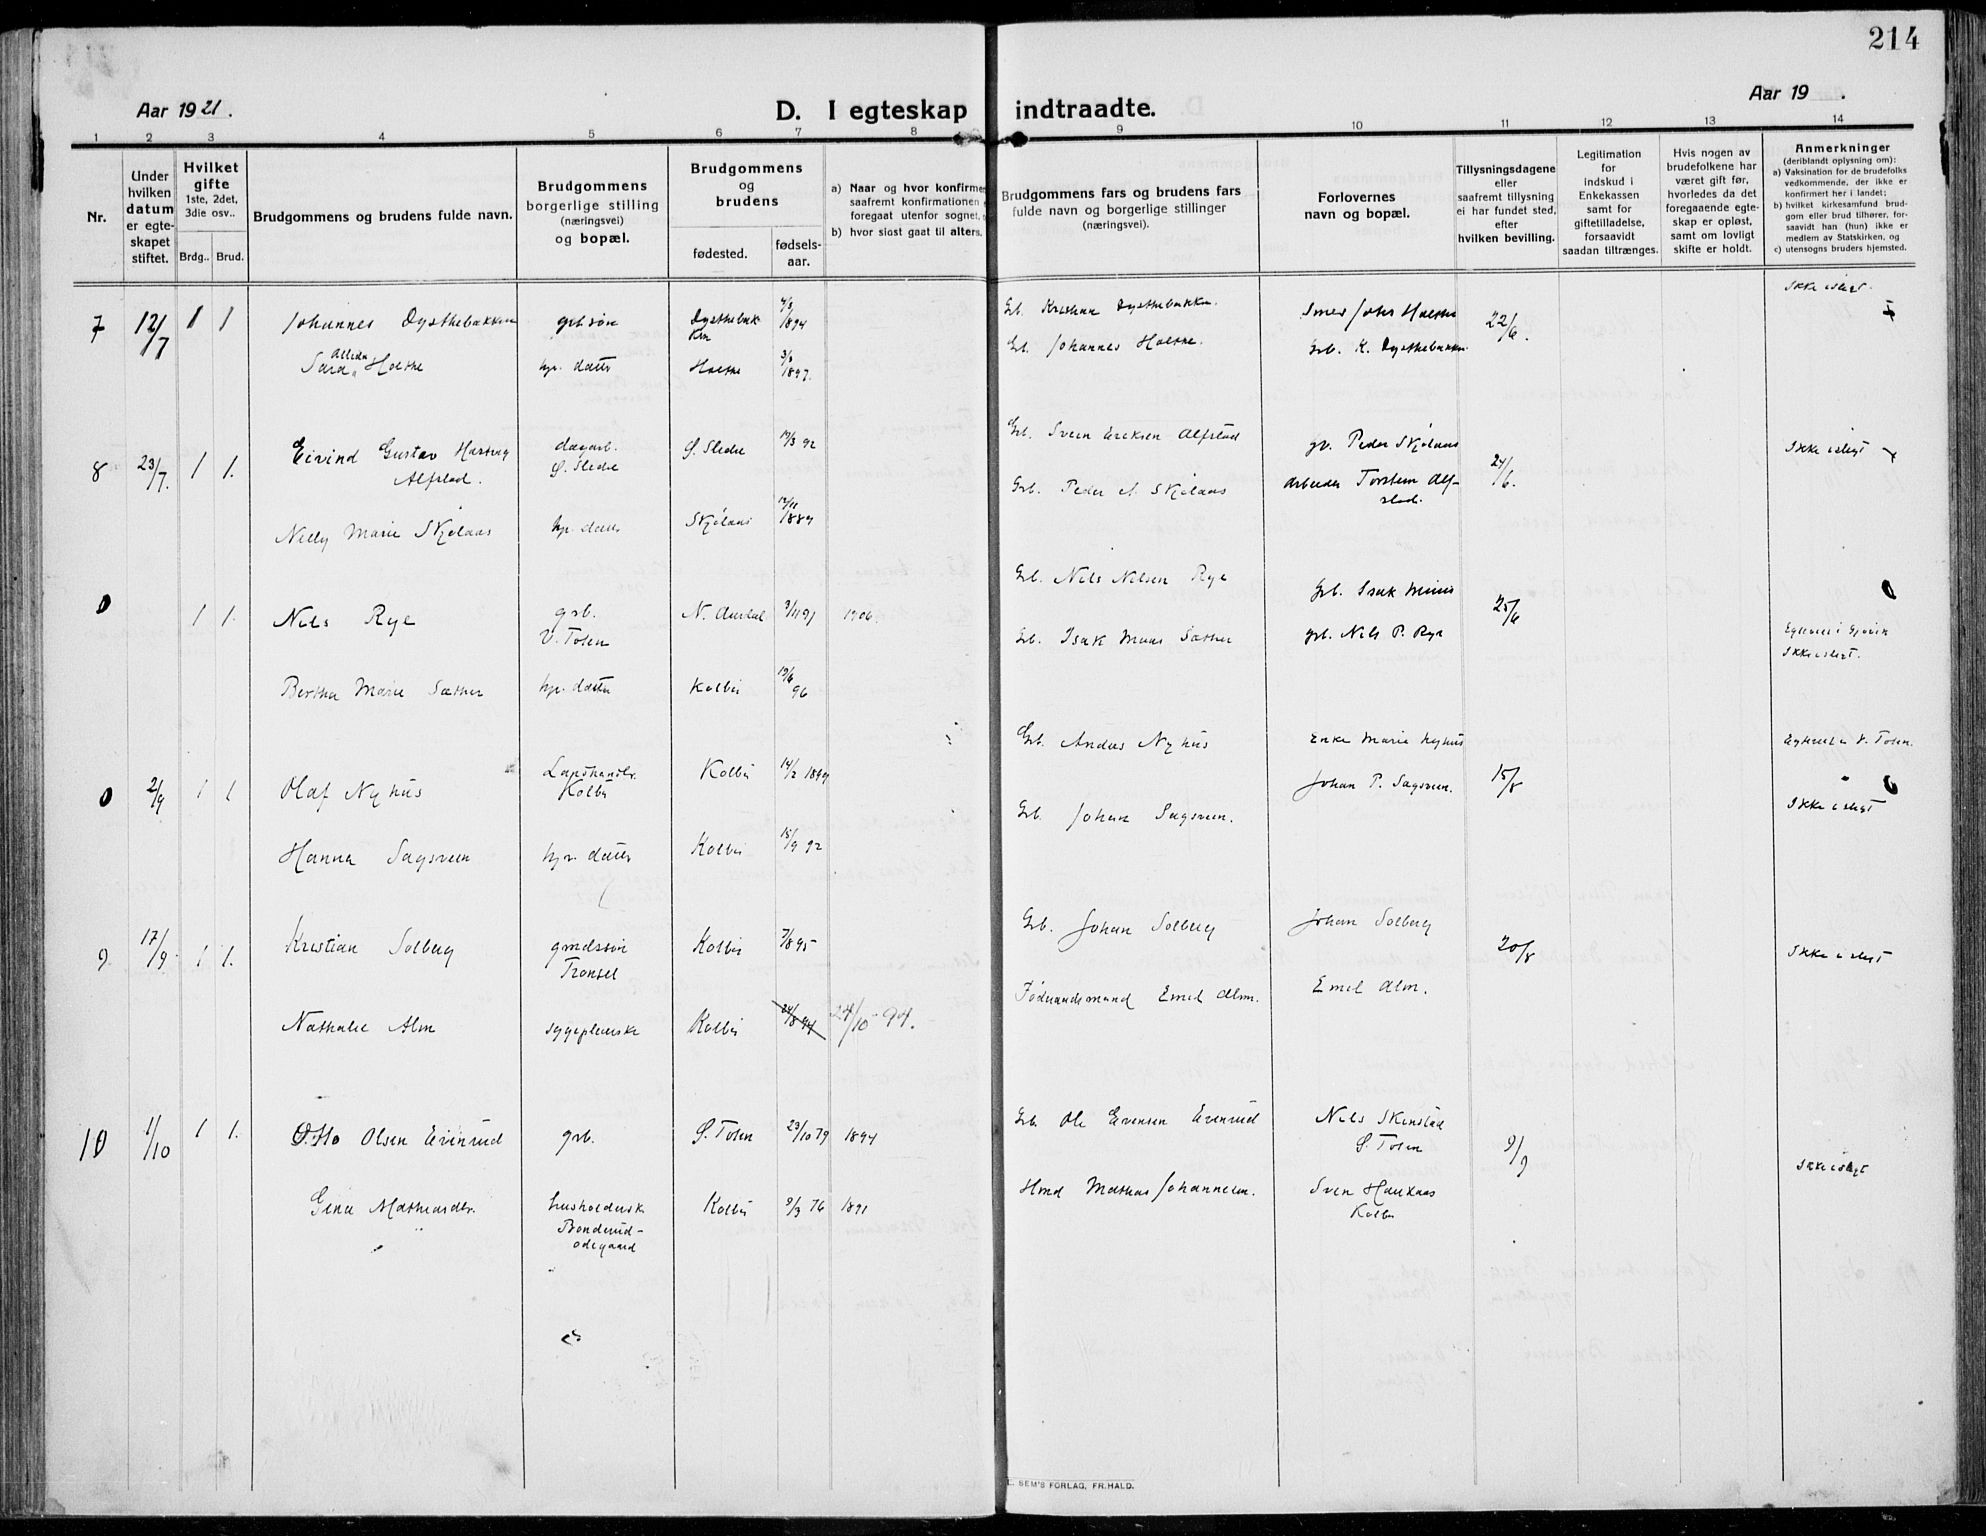 214
Aar 1921.
D. I egteskap indtraadte.
Aar 19 .
1 2 3 4 5 6 7 8 9 10 11 12 13 14
Nr.
Under hvilken datum er egteskapet stiftet.
Hvilket gifte 1ste, 2det, 3die osv..
Brdg.. Brud.
Brudgommens og brudens fulde navn.
Brudgommens borgerlige stilling (næringsvei) og bopæl.
Brudgommens og brudens
fødested.
fødsels-aar.
a) Naar og hvor konfirme
saafremt konfirmationen
foregaat utenfor sognet,
b) hvor sidst gaat til alters.
Brudgommens fars og brudens fars fulde navn og borgerlige stillinger (næringsvei).
Forlovernes navn og bopæl.
Tillysningsdagene eller saafremt tillysning ei har fundet sted, efter hvilken bevilling.
Legitimation for indskud i Enkekassen samt for giftetilladelse, forsaavidt saadan tiltrænges.
Hvis nogen av brudefolkene har været gift før, hvorledes da det foregaaende egteskap er opløst, samt om lovligt skifte er holdt.
Anmerkninger
(deriblandt oplysning om):
a) Vaksination for de brudefolks vedkommende, der ikke er konfirmert her i landet;
b) hvilket kirkesamfund brudgom eller brud tilhører, forsaavidt han (hun) ikke er medlem av Statskirken, og
c) utensogns bruders hjemsted.
7 12/7 1 1 Johannes Dysthebakken grbsøn Dysthebakken 1894 Grb. Kristian Dysthebakken. Smed Johs Holthe 22/6. Ikke i slegt.
Sara Alleda Holthe hjv. datter Holthe 3/8 1897. Gb. Johannes Holthe. Grb. K. Dysthebakken
8 23/7. 1 1. Eivind Gustav Alfstad. dagarb. Ø. Slidre Ø. Slidre 19/3 92 Gb. Sven Eriksen Alfstad gb. Peder Skjølaas 24/6. Ikke i slegt
Nelly Marie Skjølaas hjv. datter Skjølaas 1889 Grb. Peder Skjølaas Arbeider Torstein Alfstad.
0 1 1. Nils Rye grb. V. Toten N. Aurdal 91 1906. Grb. Nils Nilsen Rye Grb. Isak 25/6 0
Egteviet i Gjøvik
Ikke i slegt.
Bertha Marie Sæther hjv. datter Kolbu 19/6 96 Grb. Isak Sæther grb. Nils P. Rye
0 2/9 1 1 Olaf Nyhus Landhandler Kolbu Kolbu 14/2 Grb. Anders Nyhus Enke Marie Nyhus 15/8 V. Toten.
0
Ikke i slegt
Hanna Sagsveen hjv. datter Kolbu 18/9 92 Grb. Johan Sagsveen. Johan P. Sagsveen.
9 17/9. 1 1. Kristian Solberg Kolbu 7/8 95 Grb. Johan Solberg Johan Solberg 20/8 Ikke i slegt
Nathalie Alm sygepleierske Kolbu 24/8 94 24/10 - 94. Føderaadsmand Emil Alm. Emil Alm.
10 1/10 1 1. Otto Olsen Evenrud grb. Ø. Toten 23/10 79 1894 Grb. Ole Evensen Evenrud Nils Skinstad Ø. Toten 9/9 Ikke i slegt
Gina Mathiasdtr. husholderske Bonderud-ødegaard Kolbu 9/3 76 1891 Hmd Mathias Johannesen. Sven Haukaas Kolbu
L. SEM'S FORLAG, FR.HALD.